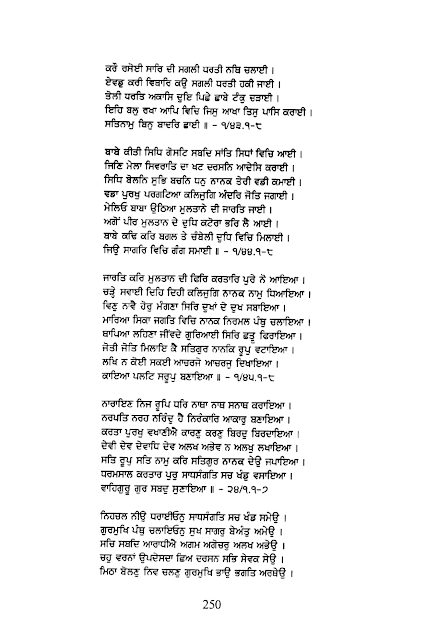 ਕਰੌ ਰਸੋਈ ਸਾਰਿ ਦੀ ਸਗਲੀ ਧਰਤੀ ਨਥਿ ਚਲਾਈ ।
ਏਵਡੁ ਕਰੀ ਵਿਥਾਰਿ ਕਉ ਸਗਲੀ ਧਰਤੀ ਹਕੀ ਜਾਈ ।
ਤੋਲੀ ਧਰਤਿ ਅਕਾਸਿ ਦੁਇ ਪਿਛੇ ਛਾਬੇ ਟੰਕੁ ਚੜਾਈ ।
ਇਹਿ ਬਲੁ ਰਖਾ ਆਪਿ ਵਿਚਿ ਜਿਸੁ ਆਖਾ ਤਿਸੁ ਪਾਸਿ ਕਰਾਈ ।
ਸਤਿਨਾਮੁ ਬਿਨੁ ਬਾਦਰਿ ਛਾਈ ॥ – ੧/੪੩.੧-੮

ਬਾਬੇ ਕੀਤੀ ਸਿਧਿ ਗੋਸਟਿ ਸਬਦਿ ਸਾਂਤਿ ਸਿਧਾਂ ਵਿਚਿ ਆਈ ।
ਜਿਣਿ ਮੇਲਾ ਸਿਵਰਾਤਿ ਦਾ ਖਟ ਦਰਸਨਿ ਆਦੇਸਿ ਕਰਾਈ ।
ਸਿਧਿ ਬੋਲਨਿ ਸੁਭਿ ਬਚਨਿ ਧਨੁ ਨਾਨਕ ਤੇਰੀ ਵਡੀ ਕਮਾਈ ।
ਵਡਾ ਪੁਰਖੁ ਪਰਗਟਿਆ ਕਲਿਜੁਗਿ ਅੰਦਰਿ ਜੋਤਿ ਜਗਾਈ ।
ਮੇਲਿਓ ਬਾਬਾ ਉਠਿਆ ਮੁਲਤਾਨੇ ਦੀ ਜਾਰਤਿ ਜਾਈ ।
ਅਗੋਂ ਪੀਰ ਮੁਲਤਾਨ ਦੇ ਦੁਧਿ ਕਟੋਰਾ ਭਰਿ ਲੈ ਆਈ ।
ਬਾਬੇ ਕਢਿ ਕਰਿ ਬਗਲ ਤੇ ਚੰਬੇਲੀ ਦੁਧਿ ਵਿਚਿ ਮਿਲਾਈ ।
ਜਿਉ ਸਾਗਰਿ ਵਿਚਿ ਗੰਗ ਸਮਾਈ ॥ – ੧/੪੪.੧-੮

ਜਾਰਤਿ ਕਰਿ ਮੁਲਤਾਨ ਦੀ ਫਿਰਿ ਕਰਤਾਰਿ ਪੁਰੇ ਨੋ ਆਇਆ ।
ਚੜ੍ਹੇ ਸਵਾਈ ਦਿਹਿ ਦਿਹੀ ਕਲਿਜੁਗਿ ਨਾਨਕ ਨਾਮੁ ਧਿਆਇਆ ।
ਵਿਣੁ ਨਾਵੈ ਹੋਰੁ ਮੰਗਣਾ ਸਿਰਿ ਦੁਖਾਂ ਦੇ ਦੁਖ ਸਬਾਇਆ ।
ਮਾਰਿਆ ਸਿਕਾ ਜਗਤਿ ਵਿਚਿ ਨਾਨਕ ਨਿਰਮਲ ਪੰਥੁ ਚਲਾਇਆ ।
ਥਾਪਿਆ ਲਹਿਣਾ ਜੀਂਵਦੇ ਗੁਰਿਆਈ ਸਿਰਿ ਛਤ੍ਰ ਫਿਰਾਇਆ ।
ਜੋਤੀ ਜੋਤਿ ਮਿਲਾਇ ਕੈ ਸਤਿਗੁਰ ਨਾਨਕਿ ਰੂਪੁ ਵਟਾਇਆ ।
ਲਖਿ ਨ ਕੋਈ ਸਕਈ ਆਚਰਜੇ ਆਚਰਜੁ ਦਿਖਾਇਆ ।
ਕਾਇਆ ਪਲਟਿ ਸਰੂਪੁ ਬਣਾਇਆ ॥ – ੧/੪੫.੧-੮

ਨਾਰਾਇਣ ਨਿਜ ਰੂਪਿ ਧਰਿ ਨਾਥਾ ਨਾਥ ਸਨਾਥ ਕਰਾਇਆ ।
ਨਰਪਤਿ ਨਰਹ ਨਰਿੰਦੁ ਹੈ ਨਿਰੰਕਾਰਿ ਆਕਾਰੁ ਬਣਾਇਆ ।
ਕਰਤਾ ਪੁਰਖੁ ਵਖਾਣੀਐ ਕਾਰਣੁ ਕਰਣੁ ਬਿਰਦੁ ਬਿਰਦਾਇਆ ।
ਦੇਵੀ ਦੇਵ ਦੇਵਾਧਿ ਦੇਵ ਅਲਖ ਅਭੇਵ ਨ ਅਲਖੁ ਲਖਾਇਆ ।
ਸਤਿ ਰੂਪੁ ਸਤਿ ਨਾਮੁ ਕਰਿ ਸਤਿਗੁਰ ਨਾਨਕ ਦੇਉ ਜਪਾਇਆ ।
ਧਰਮਸਾਲ ਕਰਤਾਰ ਪੁਰੁ ਸਾਧਸੰਗਤਿ ਸਚ ਖੰਡੁ ਵਸਾਇਆ ।
ਵਾਹਿਗੁਰੂ ਗੁਰ ਸਬਦੁ ਸੁਣਾਇਆ ॥ – ੨੪/੧.੧-੭

ਨਿਹਚਲ ਨੀਉ ਧਰਾਈਓਨੁ ਸਾਧਸੰਗਤਿ ਸਚ ਖੰਡ ਸਮੇਉ ।
ਗੁਰਮੁਖਿ ਪੰਥੁ ਚਲਾਇਓਨੁ ਸੁਖ ਸਾਗਰੁ ਬੇਅੰਤੁ ਅਮੇਉ ।
ਸਚਿ ਸਬਦਿ ਆਰਾਧੀਐ ਅਗਮ ਅਗੋਚਰੁ ਅਲਖ ਅਭੇਉ ।
ਚਹੁ ਵਰਨਾਂ ਉਪਦੇਸਦਾ ਛਿਅ ਦਰਸਨ ਸਭਿ ਸੇਵਕ ਸੇਉ ।
ਮਿਠਾ ਬੋਲਣੁ ਨਿਵ ਚਲਣੁ ਗੁਰਮੁਖਿ ਭਾਉ ਭਗਤਿ ਅਰਥੇਉ ।

250